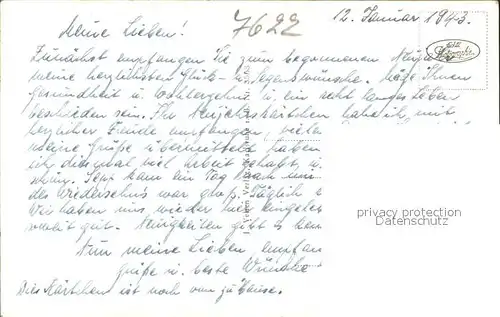 12. Januar 1943.
Meine Lieben! 7622
Zunächst empfangen Sie zum begonnenen Neujahr
meine herzlichsten Glück- u. Segenswünsche. Möge Ihnen
Gesundheit u. Wohlergehen u. ein recht langes Leben
beschieden sein. Ihr Neujahrskärtchen habe ich mit
herzlicher Freude empfangen, viele
meine Grüße übermittelt haben
ich diesmal viel Arbeit gehabt, u.
schön. Sepp kam ein Tag nach
des Wiedersehns war groß. Täglich
Wir haben uns wieder
soweit gut. Neuigkeiten gibt es
Nun meine Lieben empfan
Grüße u. beste Wünsche
Dies Kärtchen ist noch von zu Hause.
privacy protection
Datenschutz